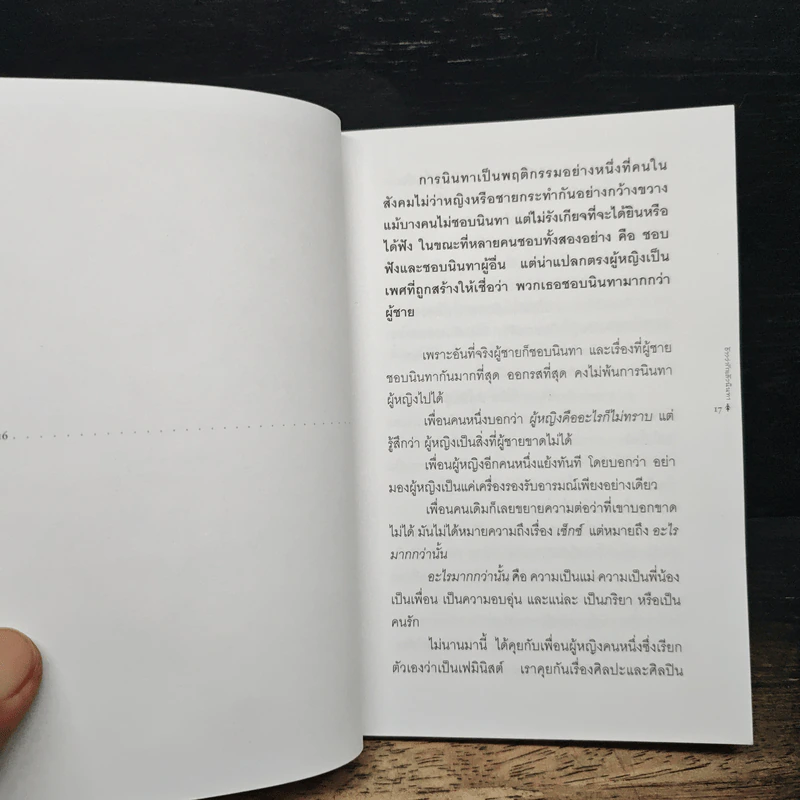 16
การนินทาเป็นพฤติกรรมอย่างหนึ่งที่คนใน
สังคมไม่ว่าหญิงหรือชายกระทำกันอย่างกว้างขวาง
แม้บางคนไม่ชอบนินทา แต่ไม่รังเกียจที่จะได้ยินหรือ
ได้ฟัง ในขณะที่หลายคนชอบทั้งสองอย่าง คือ ชอบ
ฟังและชอบนินทาผู้อื่น แต่น่าแปลกตรงผู้หญิงเป็น
เพศที่ถูกสร้างให้เชื่อว่า พวกเธอชอบนินทามากกว่า
ผู้ชาย
เพราะอันที่จริงผู้ชายก็ชอบนินทา และเรื่องที่ผู้ชาย
ชอบนินทากันมากที่สุด ออกรสที่สุด คงไม่พ้นการนินทา
ผู้หญิงไปได้
เพื่อนคนหนึ่งบอกว่า ผู้หญิงคืออะไรก็ไม่ทราบ แต่
รู้สึกว่า ผู้หญิงเป็นสิ่งที่ผู้ชายขาดไม่ได้
เพื่อนผู้หญิงอีกคนหนึ่งแย้งทันที โดยบอกว่า อย่า
มองผู้หญิงเป็นแค่เครื่องรองรับอารมณ์เพียงอย่างเดียว
เพื่อนคนเดิมก็เลยขยายความต่อว่าที่เขาบอกขาด
ไม่ได้ มันไม่ได้หมายความถึงเรื่อง เซ็กซ์ แต่หมายถึง อะไร
มากกว่านั้น
อะไรมากกว่านั้น คือ ความเป็นแม่ ความเป็นพี่น้อง
เป็นเพื่อน เป็นความอบอุ่น และแน่ละ เป็นภริยา หรือเป็น
คนรัก
ไม่นานมานี้ ได้คุยกับเพื่อนผู้หญิงคนหนึ่งซึ่งเรียก
ตัวเองว่าเป็นเฟมินิสต์ เราคุยกันเรื่องศิลปะและศิลปิน
17